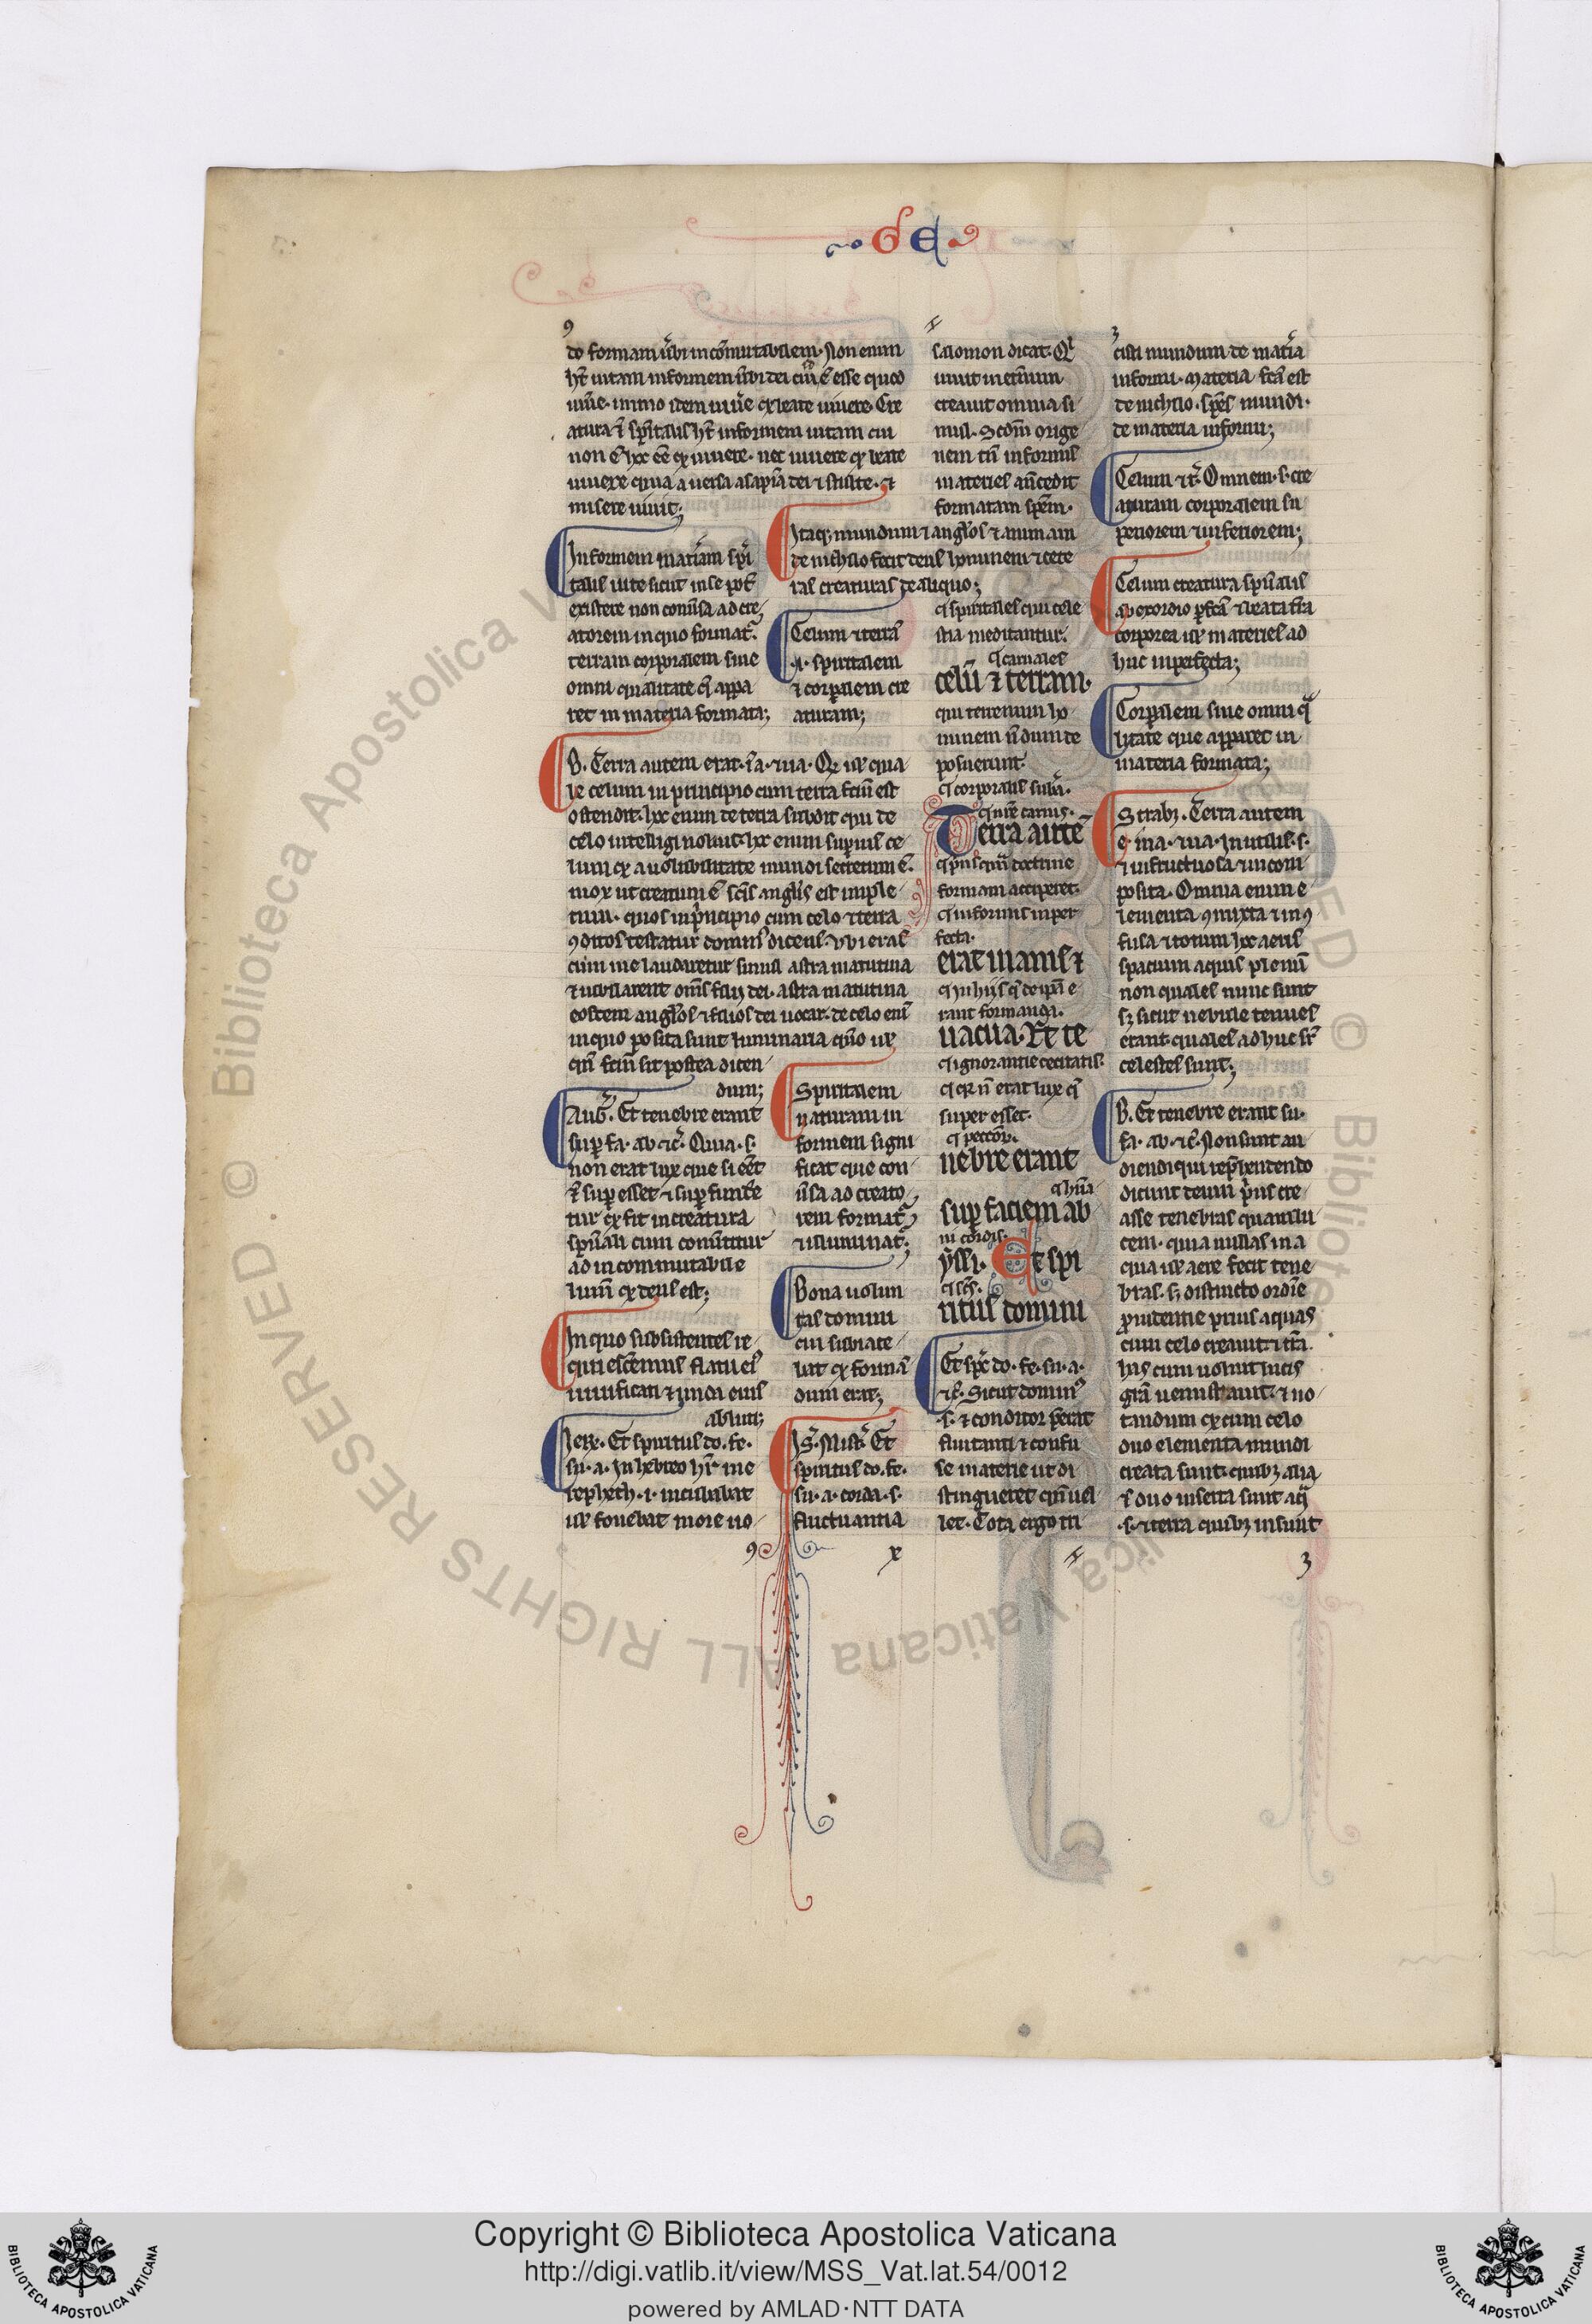 GE
do formam uerbi incommutabilem. Non enim
ht uitam informem uerbi dei cui e esse quod
uiuere. immo idem uiuere qd beate uiuere. Cre
atura u spiritalis ht informem uitam cui
non e hoc ee qd uiuere. nec uiuere qd beate
uiuere quia auersa a sapia dei stulte. et
misere uiuit;
Informem materiam spi
talis uite sicut in se pot
existere non conuersa ad cre
atorem in quo formatur.
terram corporalem sine
omni qualitate que appa
ret in materia formata;
B. Terra autem erat. ina. ua. Qr uel qua
le celum in principio cum terra fcm est
ostendit. hoc enim de terra subdit qui de
celo intelligi noluit. hoc enim supius ce
lum qd a uolubilitate mundi secretum e.
mox ut creatum e scis anglis est imple
tum. quos in principio cum celo et terra
9ditos testatur dominus dicens. vbi eras
cum me laudarent simul astra matutina
et iubilarent oms filij dei. astra matutina
eosdem anglos et filios dei uocat. de celo eni
in quo posita sunt luminaria quo uel
qn fcm sit postea dicen
dum;
Aug. Et tenebre erant
sup fa. ab et c. Quia .s.
non erat lux que si eet
et sup esset et sup funde
tur qd fit in creatura
spuali cum conuertitur
ad incommutabile
lumen qd deus est;
In quo subsistentes re
quiescemus flatu ei9
uiuificati et unda eius
abluti;
Iero. Et spiritus do. fe.
su. a. In hebreo ht me
repheth .i. incubabat
uel fouebat more uo
Itaq; mundum et anglos et animam
de nichilo fecit deus hominem et cete
ras creaturas de aliquo;
Celum et terra
.i. spiritalem
et corpalem cre
aturam;
Spiritalem
naturam in
formem signi
ficat que con
uersa ad creato
rem formatur
et illuminatur;
Bona uolun
tas domini
cui subiace
bat qd forman
dum erat;
Et
spiritus do. fe.
su. a. corda .s.
fluctuantia
salomon dicat. Qi
uiuit in eternum
creauit omnia si
mul. Scdm orige
nem tn informis
materies antecedit
formatam spem.
spiritales qui cele
stia meditantur.
carnales
celu et terram.
qui terrenum ho
minem nondum de
posuerunt.
corporalis suba.
nre carnis.
Terra aute
doctrine
formam acciperet.
informis inper
fecta.
erat inanis et
in hijs que de ipa e
rant formanda.
uacua. Et te
ignorantie cecitatis.
qr n erat lux que
super esset.
peccor.
nebre erant
sup faciem ab
cordis.
yssi. Et spi
scs.
ritus domini
Et spc do. fe. su. a.
et c. Sicut domin9
.s. et conditor perat
fluitanti et confu
se materie ut di
stingueret qn uel
let. Tota ergo tri
cisti mundum de materia
informi. Materia fca est
de nichilo. spes mundi.
de materia informi;
Celum et c. Omnem .s. cre
aturam corporalem su
periorem et inferiorem;
Celum creatura spiritalis
ab exordio pfecta et beata terra
corporea uel materies ad
huc inperfecta;
Corpalem sine omni qua
litate que apparet in
materia formata;
Strab9. Terra autem
e. ina. ua. Inutilis .s.
et infructuosa et incom
posita. Omnia enim e
lementa 9mixta et in 9
fusa et totum hoc aeris
spacium aquis plenu
non quales nunc sunt
s; sicut nebule tenues
erant. quales adhuc sr
celestes sunt;
B. Et tenebre erant su.
fa. ab. et c. Non sunt au
diendi qui reprehendendo
dicunt deum prius cre
asse tenebras quam lu
cem. quia nullas in a
qua uel aere fecit tene
bras. s; distincto ordine
prouidentie prius aquas
cum celo creauit et terra.
has cum uoluit lucis
gra uenustauit. et no
tandum qd cum celo
duo elementa mundi
creata sunt. quib; alia
duo inserta sunt aqua
.s. et terra quib; insunt
Copyright © Biblioteca Apostolica Vaticana
http://digi.vatlib.it/view/MSS_Vat.lat.54/0012
powered by AMLAD·NTT DATA
BIBLIOTECA APOSTOLICA VATICANA
BIBLIOTECA APOSTOLICA VATICANA